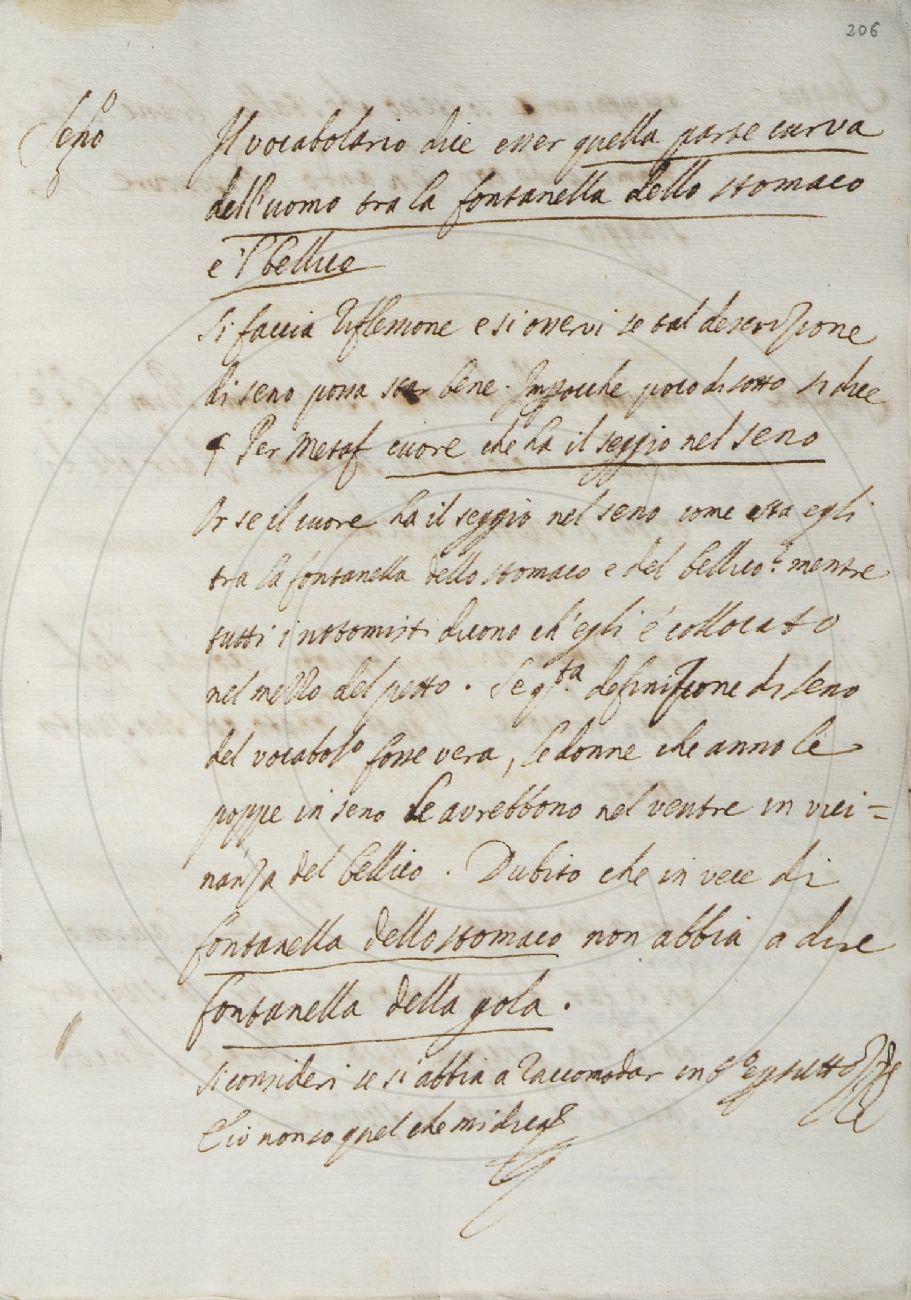 206
Seno
Il vocabolario dice esser quella parte curva
dell'uomo tra la fontanella dello stomaco
e 'l bellico
Si faccia riflessione e si osservi se tal descrizione
di seno possa star bene. Impocche poco di sotto si dice
¶ Per Metaf cuore che ha il seggio nel seno
Or se il cuore ha il seggio nel seno come sta egli
tra la fontanella dello stomaco e del bellico? mentre
tutti i notomisti dicono ch'egli è collocato
nel mezzo del petto. Se qta definizione di seno
del vocabolo fosse vera, le donne che anno le
poppe in seno le avrebbono nel ventre in vici=
nanza del bellico. Dubito che in vece di
fontanella dello stomaco non abbia a dire
fontanella della gola.
Si consideri se si abbia a raccomodar in
E io non so quel che mi dica